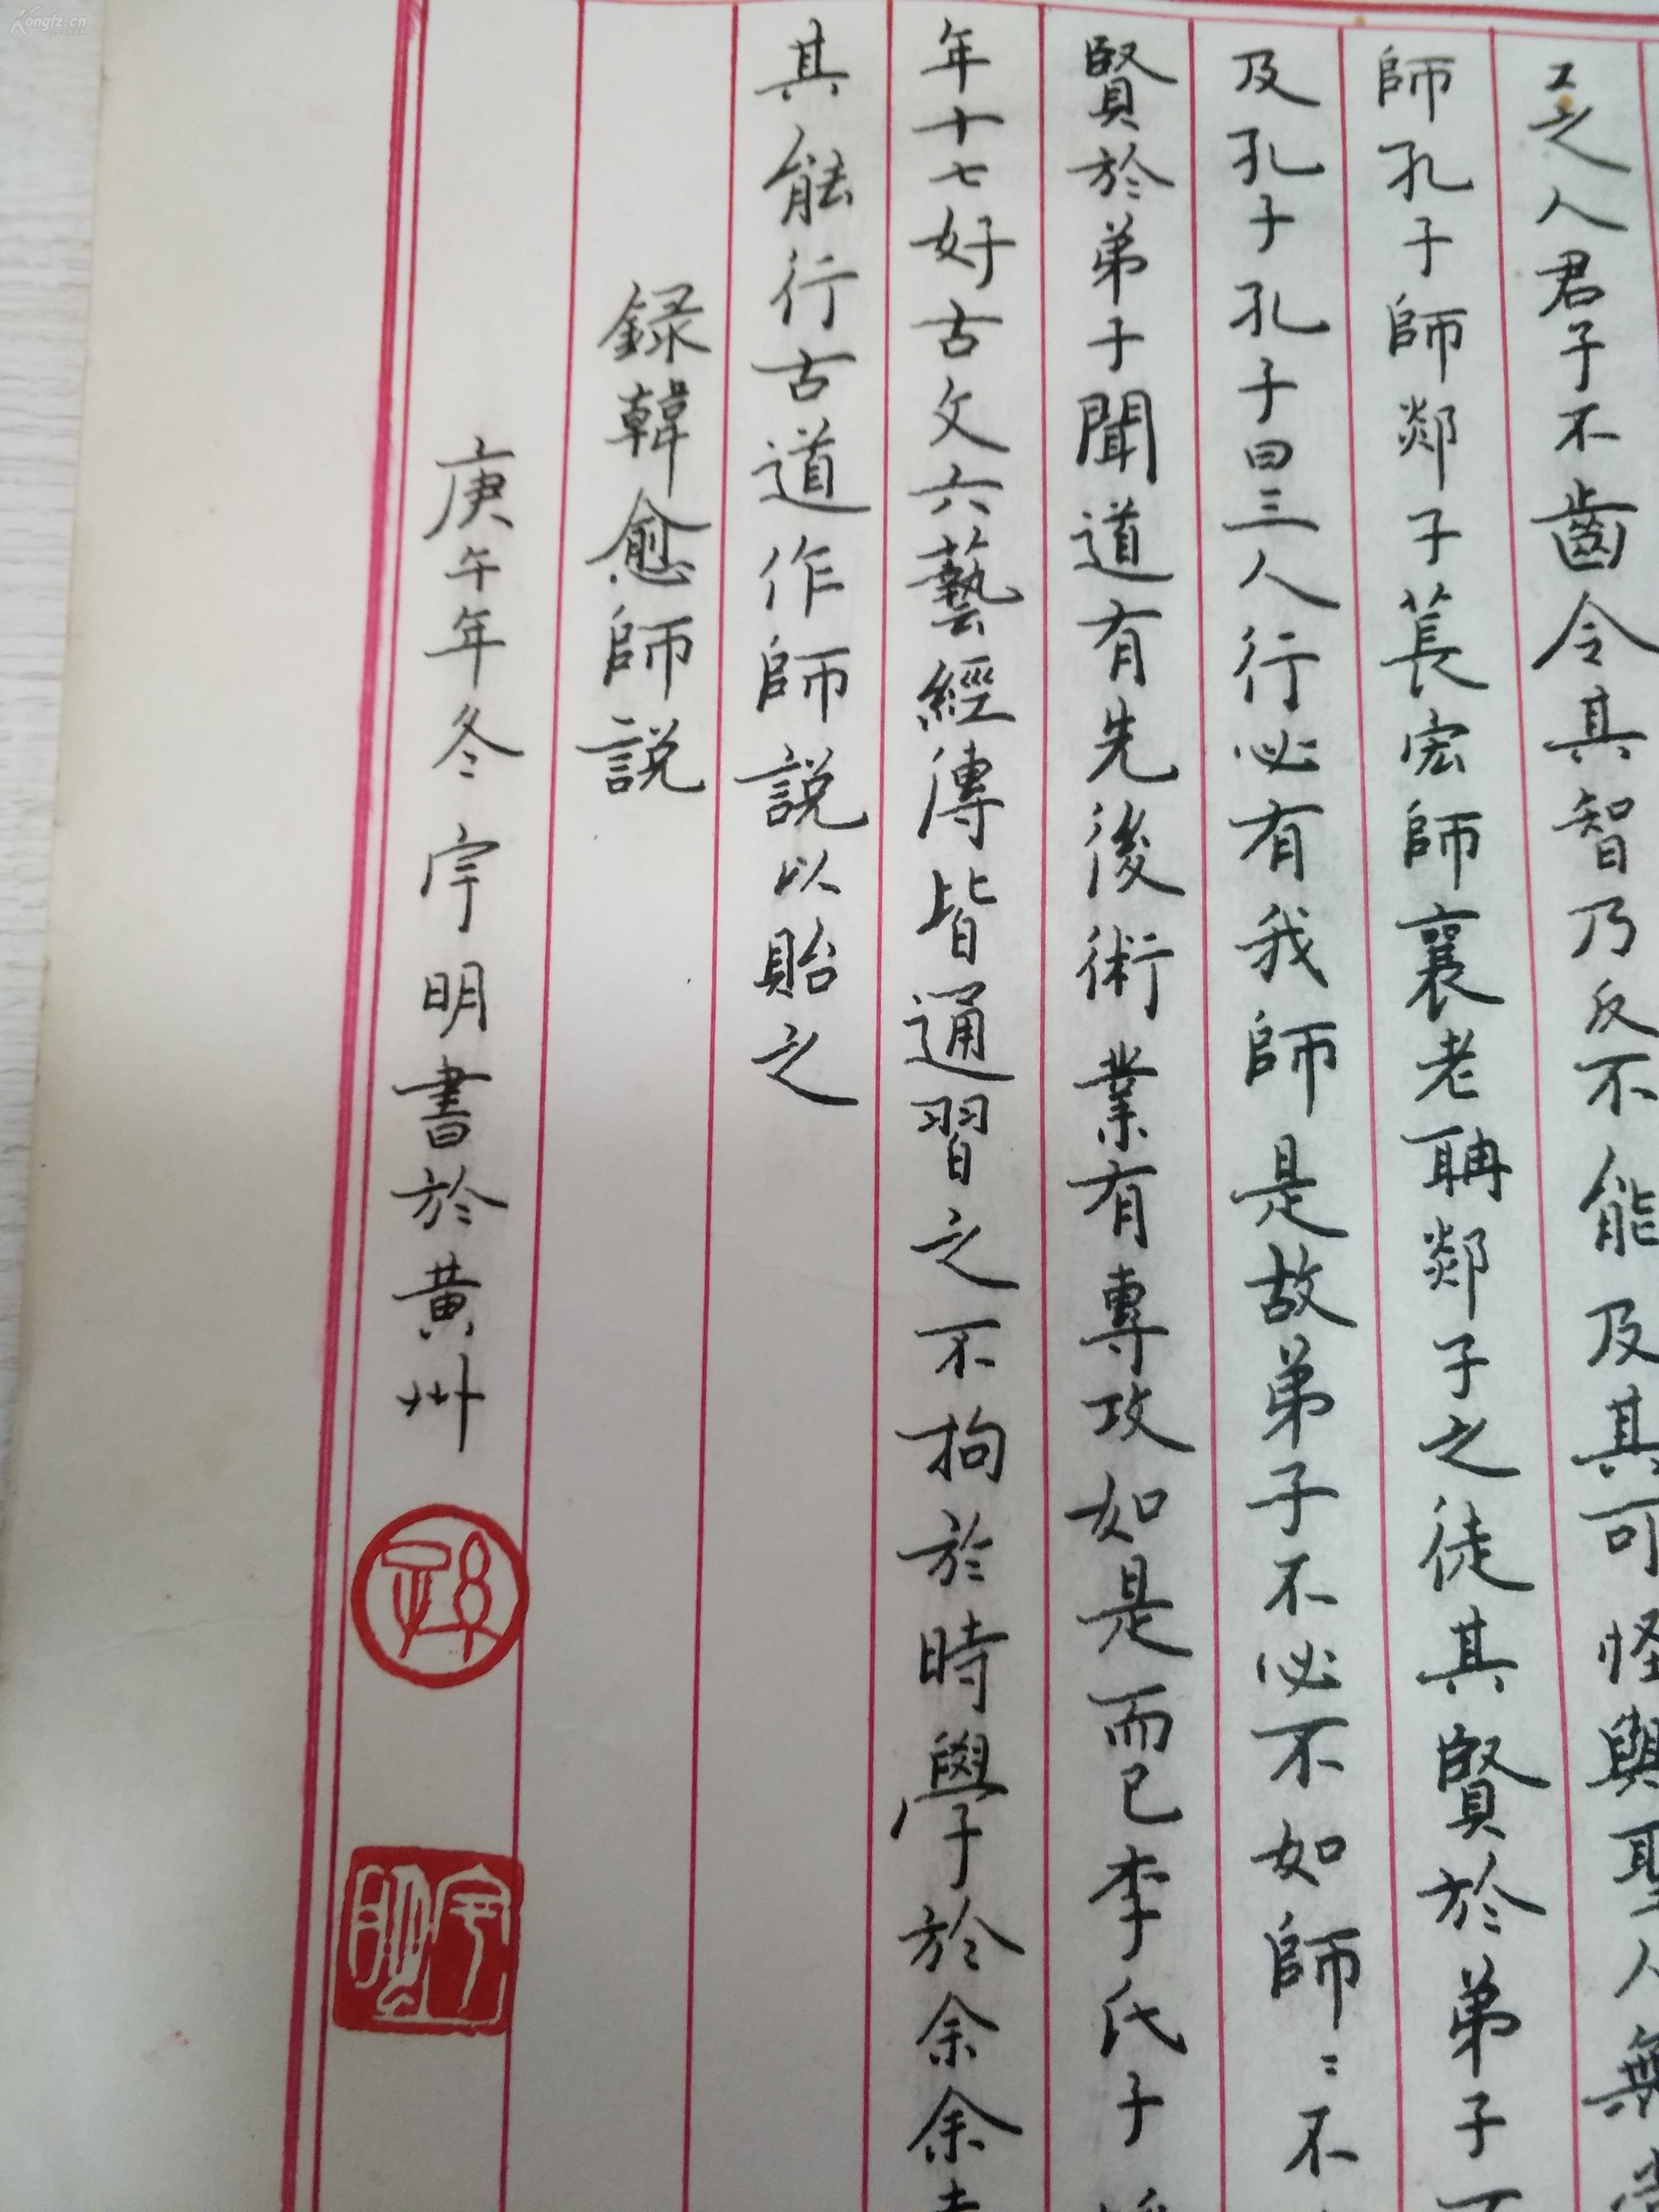 工之人君子不齒令其智乃反不能及其可怪與聖人無
師孔子師郯子萇宏師襄老聃郯子之徒其賢於弟子
及孔子孔子曰三人行必有我師是故弟子不必不如師〻不
賢於弟子聞道有先後術業有專攻如是而已李氏子
年十七好古文六藝經傳皆通習之不拘於時學於余余
其能行古道作師說以貽之
録韓愈師說
庚午年冬宇明書於黃州
宇明
Kongfz.cn